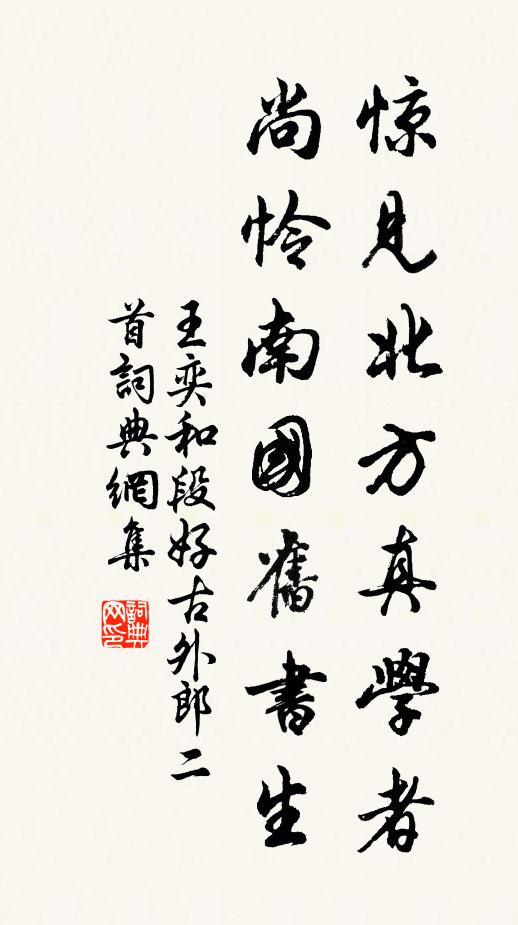 惊見北方真學者
尚怜南國舊書生
王奕和段好古外郎二
首詞典網集
詞典网印